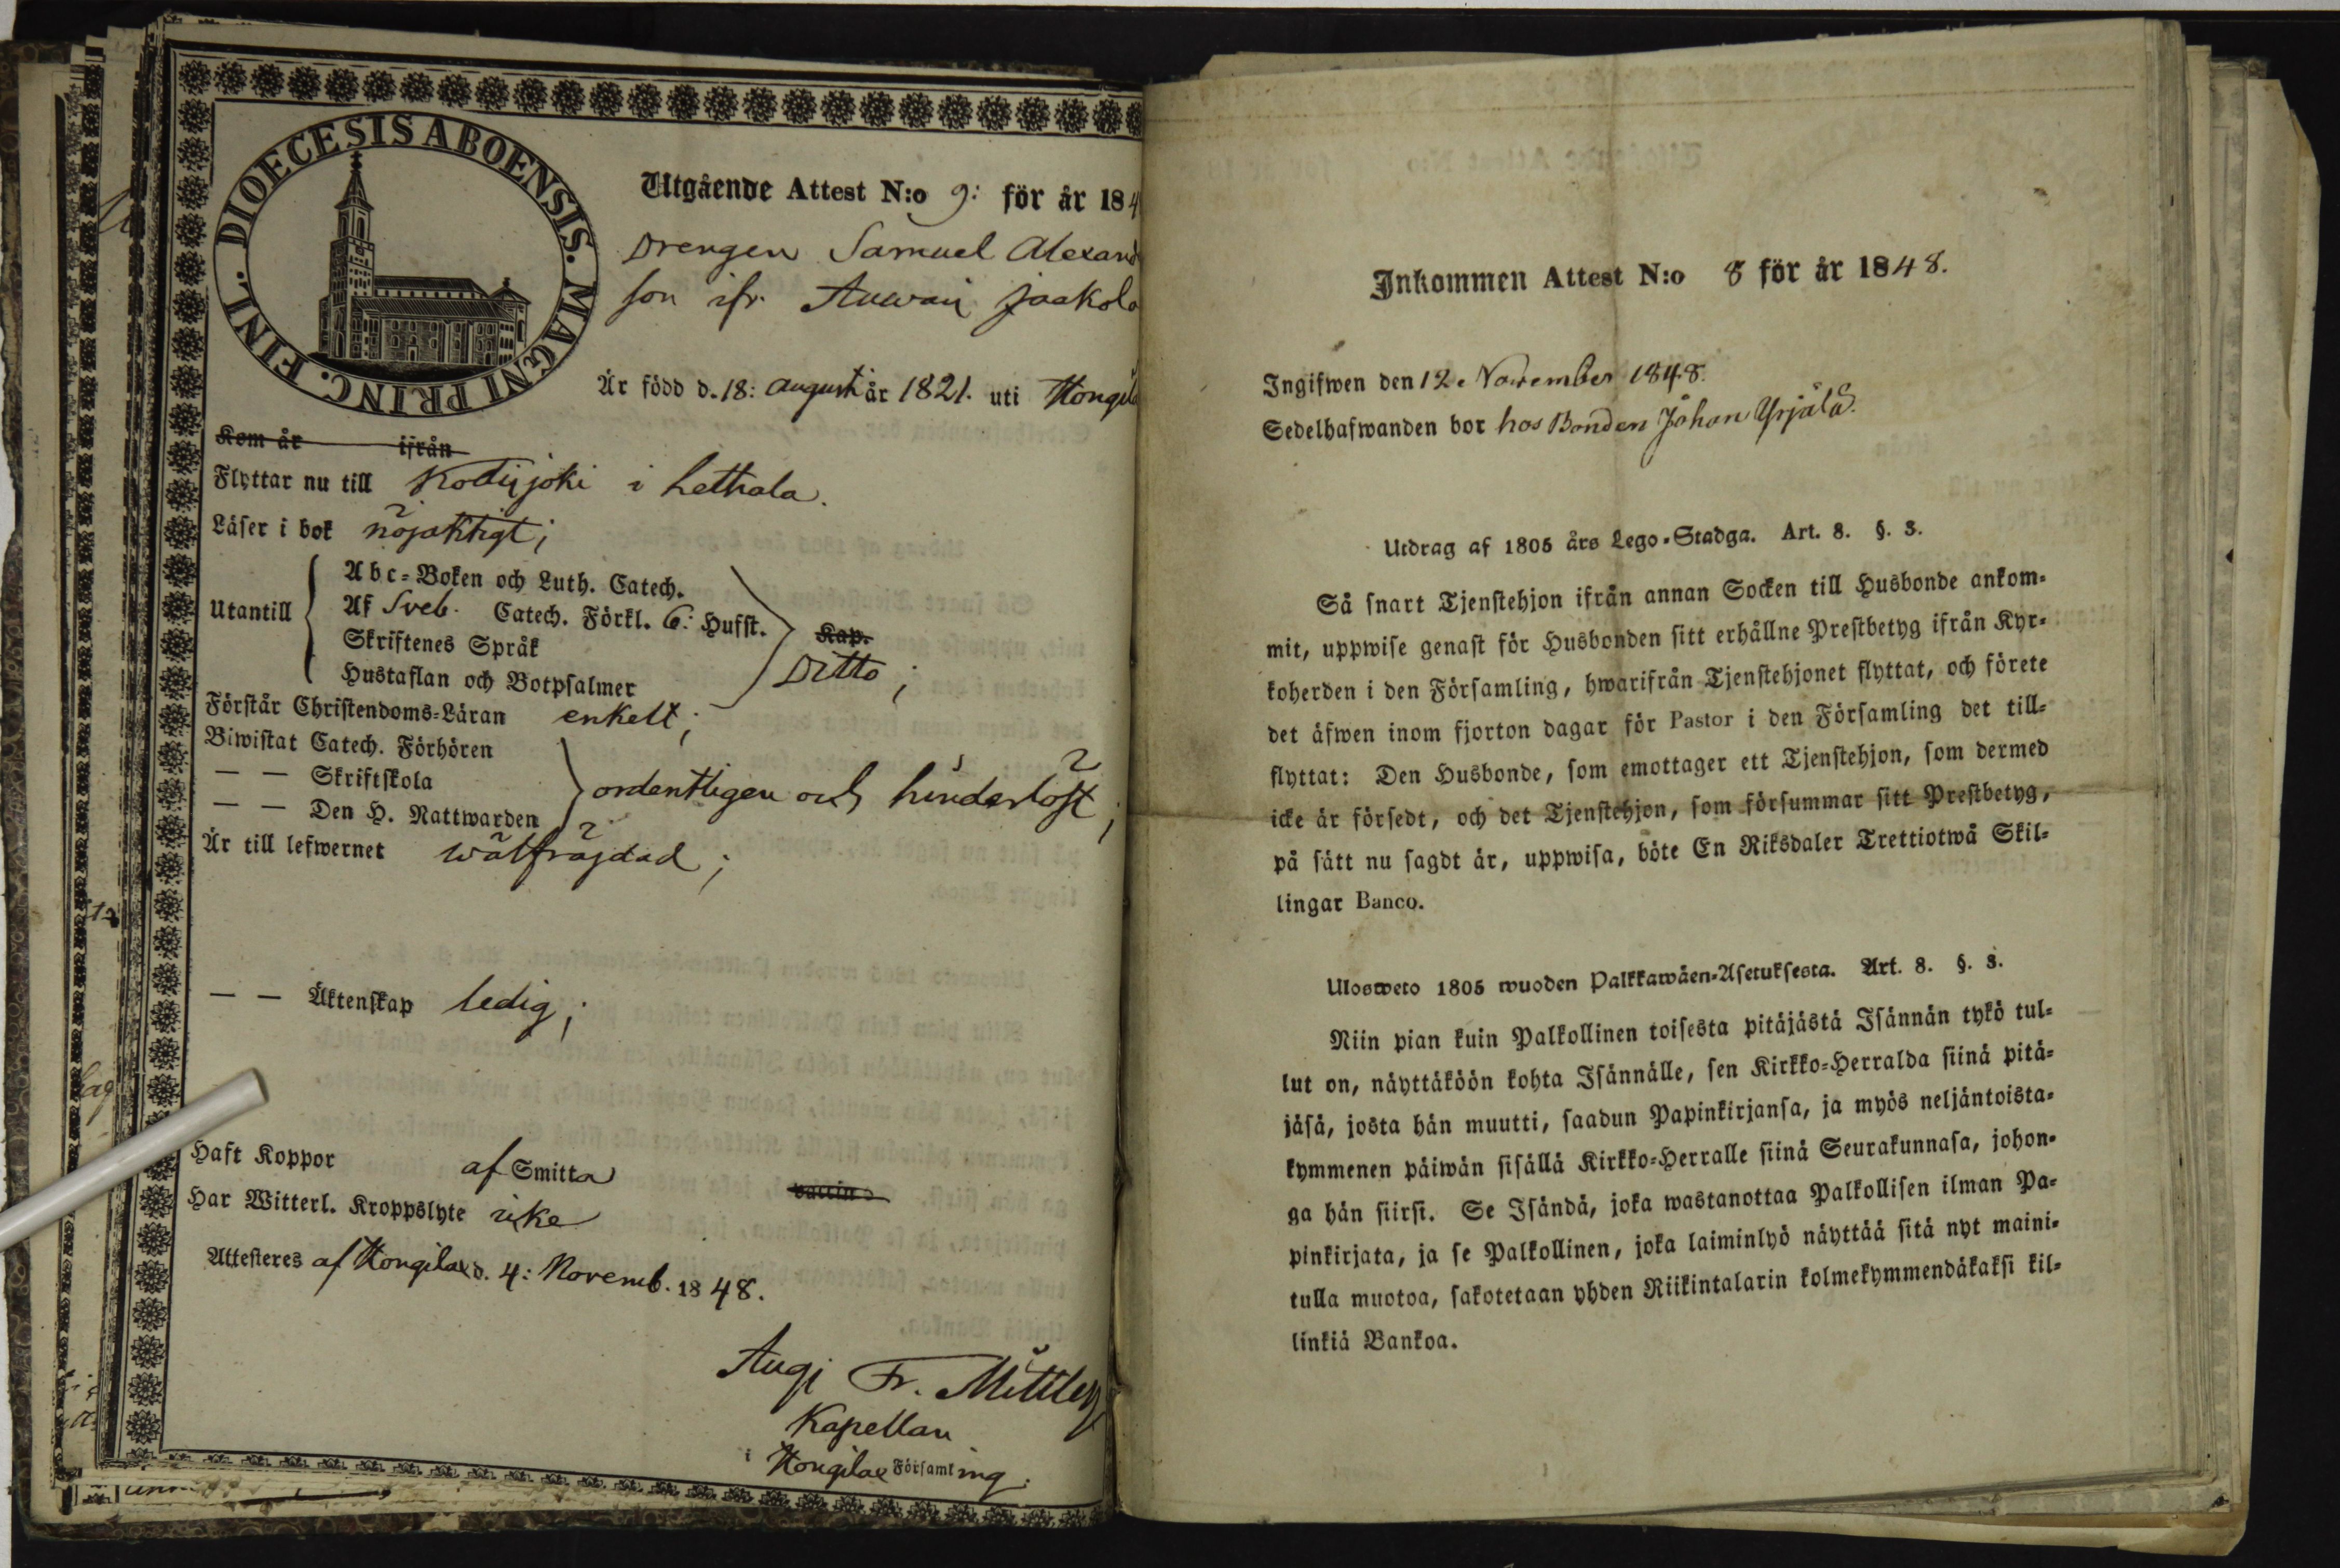 FINL. DIOECESIS ABOENSIS. MAGNI PRINC.
Utgående Attest N:o 9: för år 184
Drengen Samuel Alexand
son ifr. Auwais Jaakola
Är född d. 18: augusti år 1821. uti Kongila
Kom år ifrån
Flyttar nu till Kodisjoki i Lethala.
Läser i bok nöjaktigt;
Utantill
Abc-Boken och Luth. Catech.
Af Sveb. Catech. Förkl. 6: Hufst.
Skriftenes Språk
Hustaflan och Botpsalmer
Kap.
Ditto;
Förstår Christendoms-Läran enkelt;
Biwistat Catech. Förhören
— — Skriftskola
— — Den H. Nattwarden
ordentligen och hinderlöst;
Är till lefwernet wälfräjdad;
— — Äktenskap ledig;
Haft Koppor af Smitta vaccin
Har Witterl. Kroppslyte icke
Attesteres af Kongilax d. 4: Novemb. 1848.
Aug: Fr. Mittler
Kapellan
i Kongilax Församling.
Inkommen Attest N:o 8 för år 1848.
Ingifwen den 12. November 1848.
Sedelhafwanden bor hos Bonden Johan Yrjälä.
Utdrag af 1805 års Lego-Stadga. Art. 8. §. 3.
Så snart Tjenstehjon ifrån annan Socken till Husbonde ankom-
mit, uppwise genast för Husbonden sitt erhållne Prestbetyg ifrån Kyr-
koherden i den Församling, hwarifrån Tjenstehjonet flyttat, och förete
det äfwen inom fjorton dagar för Pastor i den Församling det till-
flyttat: Den Husbonde, som emottager ett Tjenstehjon, som dermed
icke är försedt, och det Tjenstehjon, som försummar sitt Prestbetyg,
på sätt nu sagdt är, uppwisa, böte En Riksdaler Trettiotwå Skil-
lingar Banco.
Ulosweto 1805 wuoden Palkkawäen-Asetuksesta. Art. 8. §. 3.
Niin pian kuin Palkollinen toisesta pitäjästä Isännän tykö tul-
lut on, näyttäköön kohta Isännälle, sen Kirkko-Herralda siinä pitä-
jäsä, josta hän muutti, saadun Papinkirjansa, ja myös neljäntoista-
kymmenen päiwän sisällä Kirkko-Herralle siinä Seurakunnasa, johon-
ga hän siirsi. Se Isändä, joka wastanottaa Palkollisen ilman Pa-
pinkirjata, ja se Palkollinen, joka laiminlyö näyttää sitä nyt maini-
tulla muotoa, sakotetaan yhden Riikintalarin kolmekymmendäkaksi kil-
linkiä Bankoa.